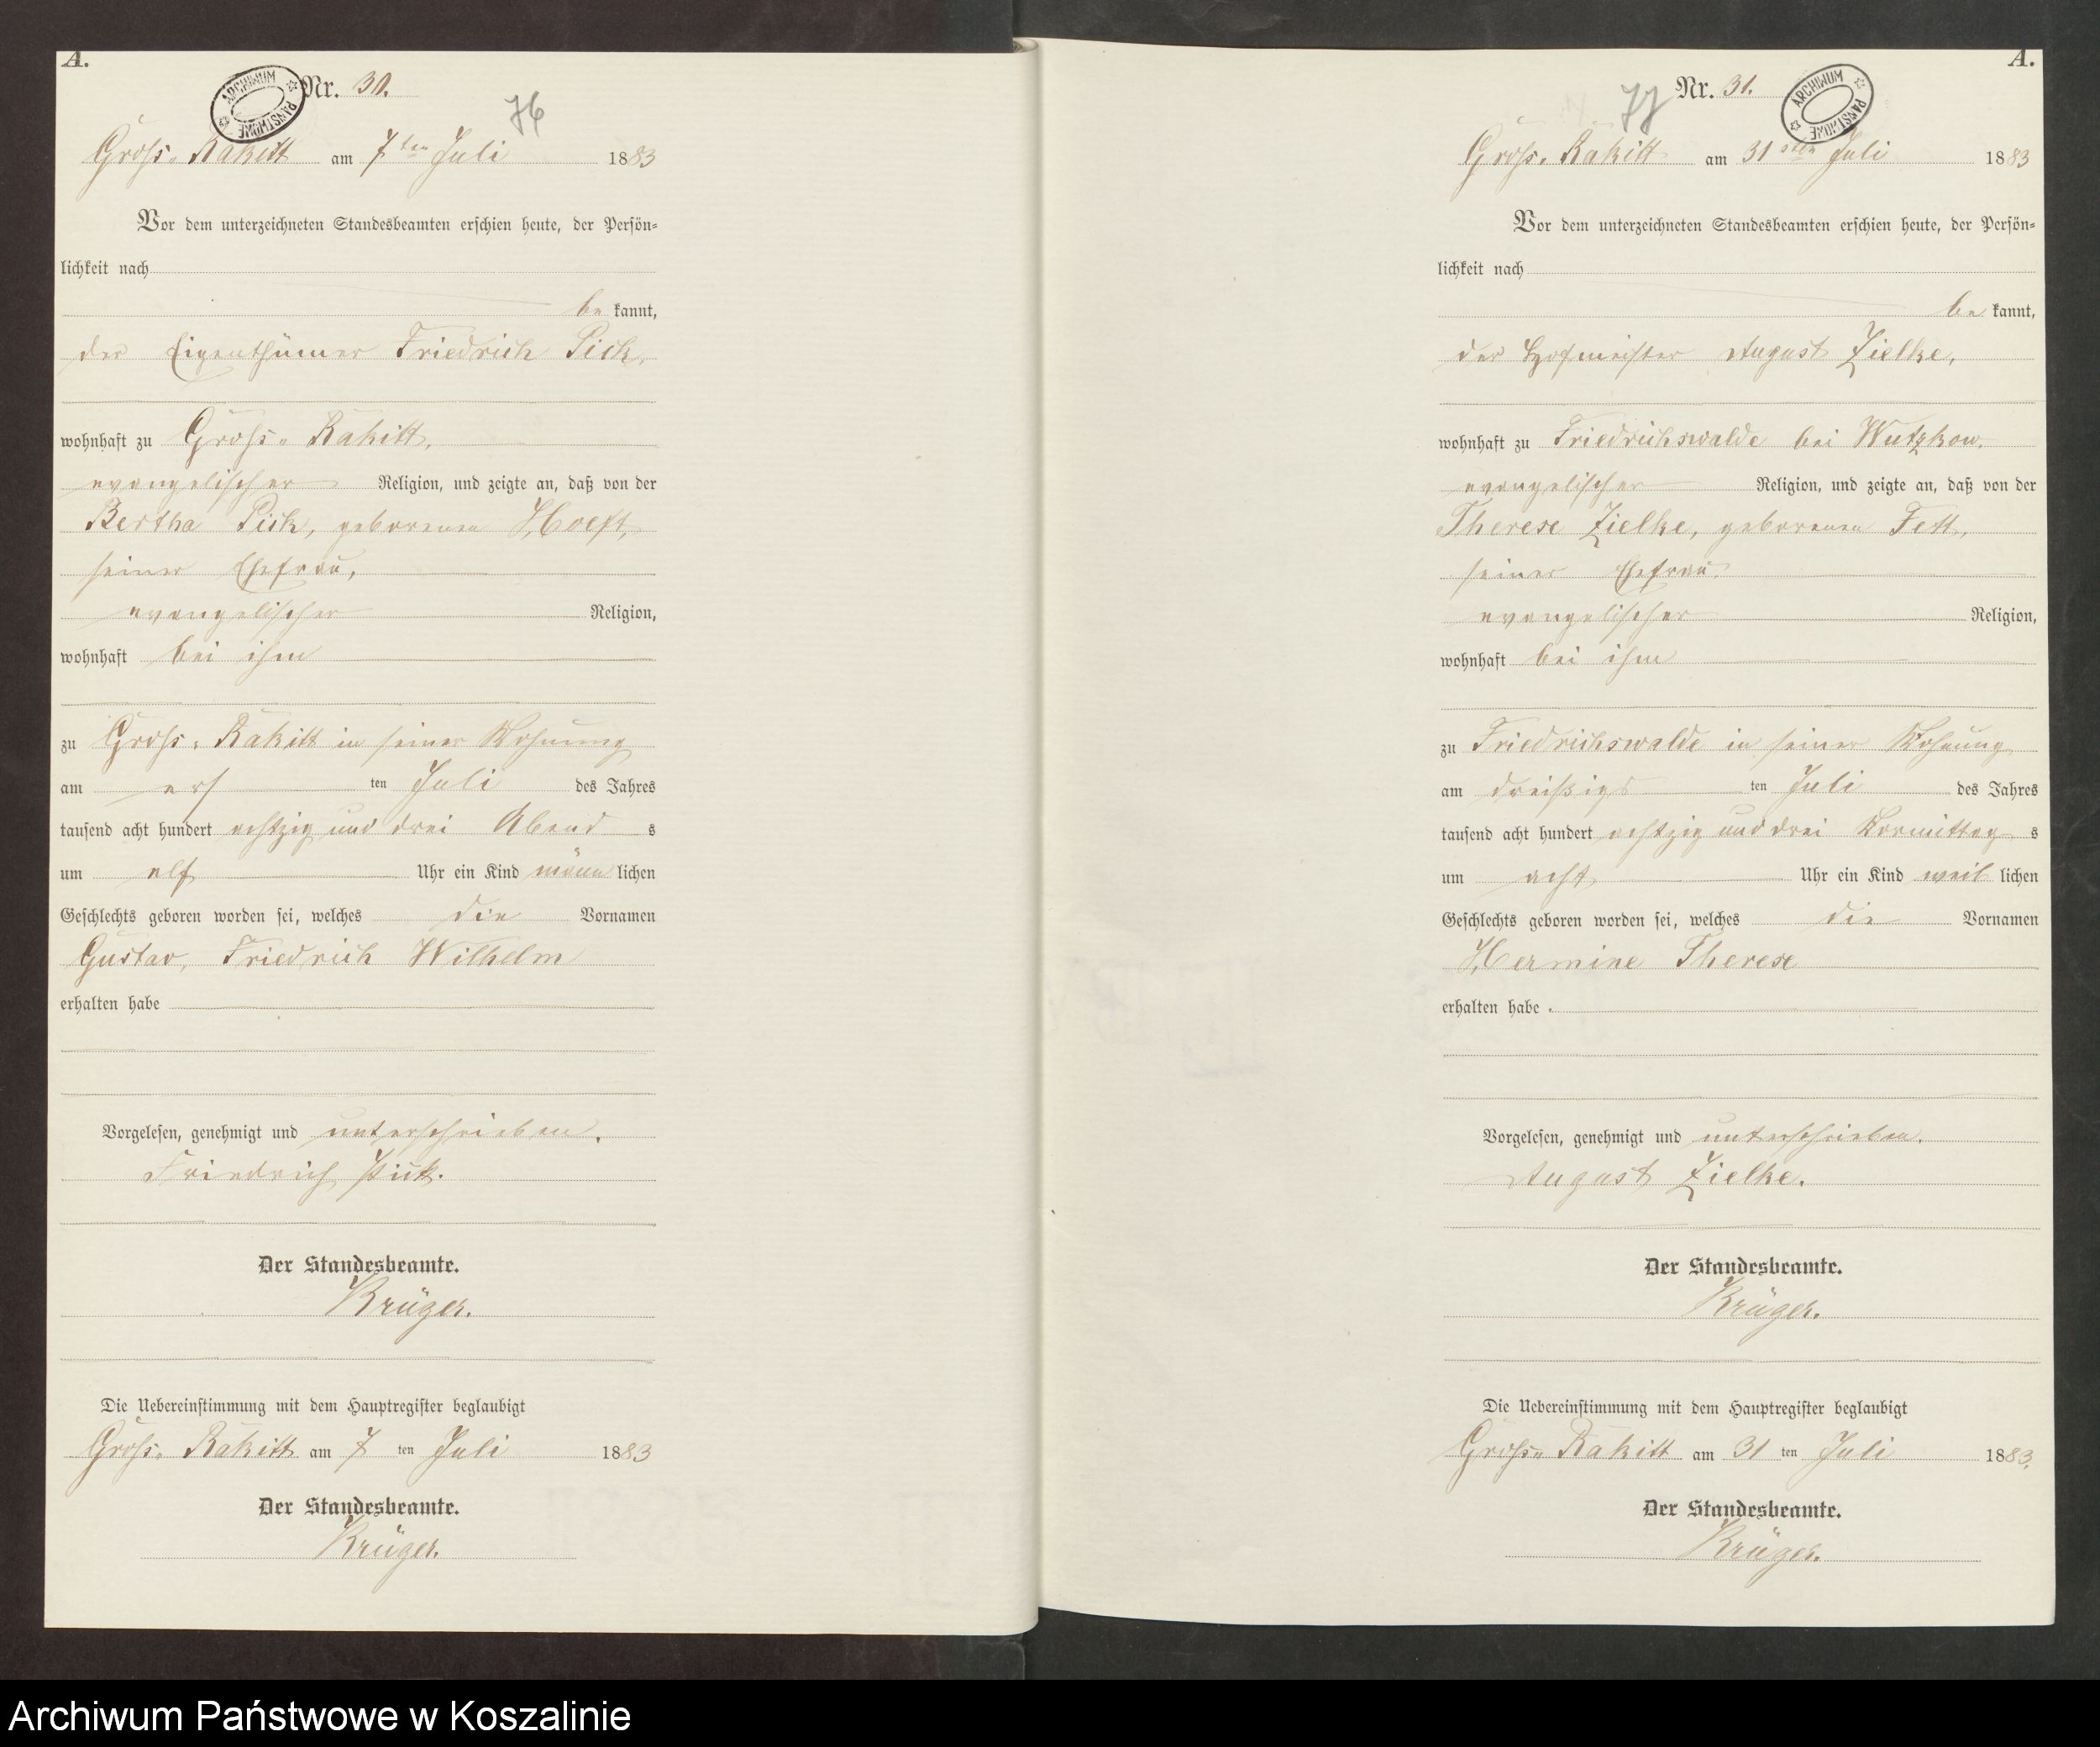 A.
ARCHIWUM PAŃSTWOWE
Nr. 30.
76
Gross-Rakitt am 7ten Juli 1883
Vor dem unterzeichneten Standesbeamten erschien heute, der Persön-
lichkeit nach
be kannt,
der Eigenthümer Friedrich Pick,
wohnhaft zu Gross-Rakitt,
evangelischer Religion, und zeigte an, daß von der
Bertha Pick, geborenen Hoeft,
seiner Ehefrau,
evangelischer Religion,
wohnhaft bei ihm
zu Gross-Rakitt in seiner Wohnung
am ers ten Juli des Jahres
tausend acht hundert achtzig und drei Abend s
um elf Uhr ein Kind männ lichen
Geschlechts geboren worden sei, welches die Vornamen
Gustav, Friedrich Wilhelm
erhalten habe
Vorgelesen, genehmigt und unterschrieben.
Friedrich Pick.
Der Standesbeamte.
Krüger.
Die Uebereinstimmung mit dem Hauptregister beglaubigt
Gross-Rakitt am 7 ten Juli 1883
Der Standesbeamte.
Krüger.
A.
Nr. 31.
ARCHIWUM PAŃSTWOWE
77
Gross-Rakitt am 31sten Juli 1883
Vor dem unterzeichneten Standesbeamten erschien heute, der Persön-
lichkeit nach
be kannt,
der Hofmeister August Zielke,
wohnhaft zu Friedrichswalde bei Wutzkow,
evangelischer Religion, und zeigte an, daß von der
Therese Zielke, geborenen Fett,
seiner Ehefrau,
evangelischer Religion,
wohnhaft bei ihm
zu Friedrichswalde in seiner Wohnung
am dreißigs ten Juli des Jahres
tausend acht hundert achtzig und drei Vormittag s
um acht Uhr ein Kind weib lichen
Geschlechts geboren worden sei, welches die Vornamen
Hermine Therese
erhalten habe.
Vorgelesen, genehmigt und unterschrieben.
August Zielke.
Der Standesbeamte.
Krüger.
Die Uebereinstimmung mit dem Hauptregister beglaubigt
Gross-Rakitt am 31 ten Juli 1883.
Der Standesbeamte.
Krüger.
Archiwum Państwowe w Koszalinie